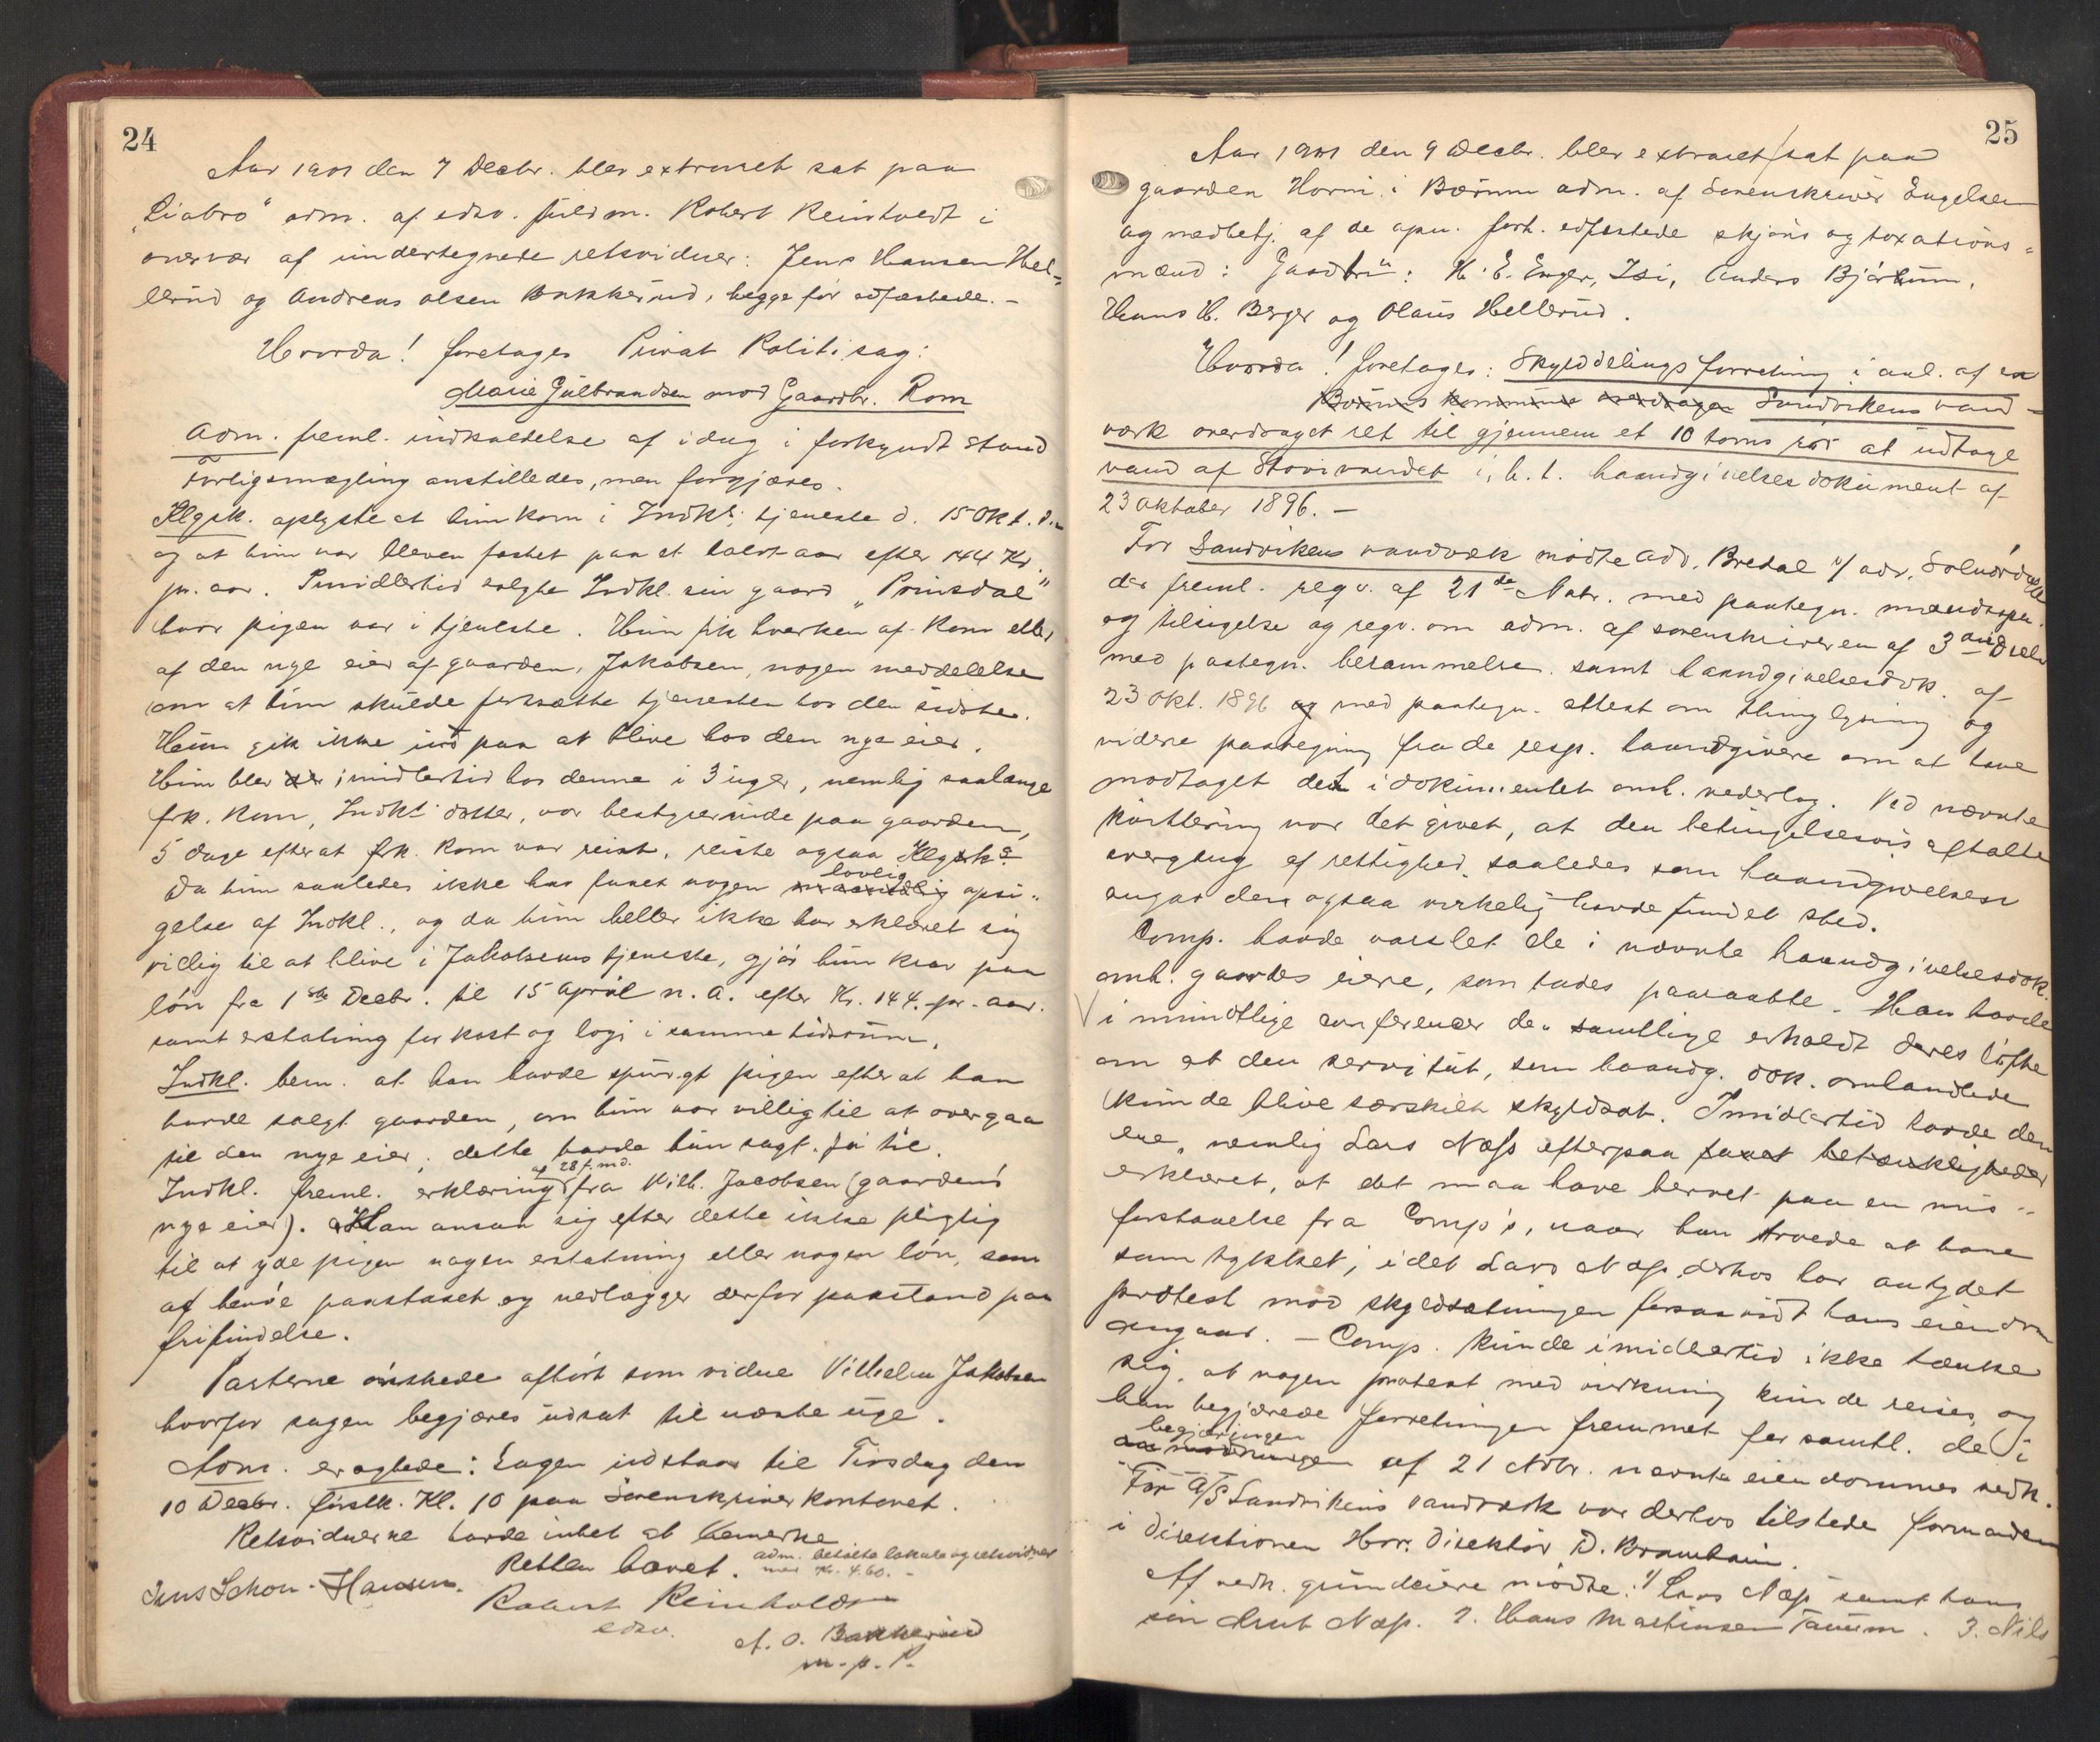 24
Aar 1901 den 7 Decbr. blev extraret sat paa
"Liabro" adm. af edsv. fuldm. Robert Reinholdt i
overvær af undertegnede retsvidner: Jens Hansen Hel-
lerud og Andreas Olsen Bakkerud, begge før edfæstede. -
Hvorda! foretages Privat Politisag:
Marie Gulbrandsen mod Gaardbr. Rom
Adm. freml. indkaldelse af idag i forkyndt stand
Forligsmægling anstilledes, men forgjæves.
Klgsk. oplyste at hun kom i Indkl. tjeneste d. 15 Okt. d.a.
og at hun var bleven fæstet paa et halvt aar efter 144 Kr.
pr. aar. Imidlertid solgte Indkl. sin gaard "Prinsdal"
hvor pigen var i tjeneste. Hun fik hverken af Rom eller
af den nye eier af gaarden, Jakobsen, nogen meddelelse
om at hun skulde fortsætte tjenesten hos den sidste.
Hun gik ikke ind paa at blive hos den nye eier.
Hun blev der imidlertid hos denne i 3 uger, nemlig saalænge
frk. Rom, Indkl. datter, var bestyrerinde paa gaarden,
5 dage efterat frk. Rom var reist, reiste ogsaa Klgsk.
Da hun saaledes ikke har faaet nogen lovlig opsi-
gelse af Indkl., og da hun heller ikke har erklæret sig
villig til at blive i Jakobsens tjeneste, gjør hun krav paa
løn fra 1ste Decbr. til 15 April n. a. efter Kr. 144.- pr. aar.
samt erstatning for kost og logi i samme tidsrum.
Indkl. bem. at han havde spurgt pigen efter at han
havde solgt gaarden, om hun var villig til at overgaa
til den nye eier; dette havde hun sagt ja til.
Indkl. freml. erklæring af 28 f. md. fra Vilh. Jacobsen (gaardens
nye eier). Han ansaa sig efter dette ikke pligtig
til at yde pigen nogen erstatning eller nogen løn, som
af hende paastaaet og nedlægger derfor paastand paa
frifindelse.
Parterne ønskede afhørt som vidne Vilhelm Jakobsen
hvorfor sagen begjæres udsat til næste uge.
Adm. eragtede: Sagen udstaar til Tirsdag den
10 Decbr. førstk. Kl. 10 paa Sorenskriverkontoret.
Retsvidnerne havde intet at bemerke
Retten hævet. Adm. betalte lokale og retsvidner
med Kr. 4.60. -
Jens Schou-Hansen. Robert Reinholdt
edsv. A. O. Bakkerud
m. p. P.
25
Aar 1901 den 9 Decbr. blev extraret sat paa
gaarden Horni i Bærum adm. af Sorenskriver Engelsen
og medbetj. af de opn. forh. edfæstede skjøns og taxations-
mænd: Gaardbr.: H. E. Enger, Isi, Anders Bjørum,
Hans H. Berger og Olaus Hellerud.
Hvorda! foretages: Skylddelingsforretning i anl. af en
Bærums kommune overdragen Sandvikens vand-
værk overdraget ret til gjennem et 10 toms rør at udtage
vand af Stovivandet i. h. t. haandgivelsesdokument af
23 oktober 1896. -
For Sandvikens vandværk mødte adv. Bredal v/ adv. Solnørdal
der freml. reqv. af 21de Nobr. med paategn. mændsopn.
og tilsigelse og reqv. om adm. af sorenskriveren af 3die ds
med paategn. berammelse samt haandgivelsesdok. af
23 Okt. 1896 og med paategn. attest om thinglysning og
videre paategning fra de resp. haandgivere om at have
modtaget det i dokumentet omh. vederlag. Ved nævnte
kvittering var det givet, at den betingelsesvis aftalte
overgang af rettighed saaledes som haandgivelsen
angav den ogsaa virkelig havde fundet sted.
Comp. havde varslet de i nævnte haandgivelsesdok.
omh. gaardes eiere, som lodes paaraabte. Han havde
i mundtlige conferencer den samtlige erholdt deres løfte
om at den servitut, som haandg. dok. omhandlede
kunde blive særskilt skyldsat. Imidlertid havde den
ene, nemlig Lars Næss efterpaa faaet betænkeligheder
erklæret, at det maa have beroet paa en mis-
forstaaelse fra Comp's, naar han troede at have
samtykket; idet Lars Næss derhos har antydet
protest mod skyldsætningen forsaavidt hans eiendom
angaar. - Comp. kunde imidlertid ikke tænke
sig, at nogen protest med virkning kunde reises, og
han begjærede forretningen fremmet for samtl. de i
begjæringen
anmodningen af 21 Nobr. nævnte eiendommes vedk.
For A/S Sandvikens vandværk var derhos tilstede formanden
i direktionen Herr Direktør D.
Af vedk. grundeiere mødte: 1/ Lars Næss samt hans
søn Knut Næss. 2. Hans Martinsen Tanum. 3. Nils